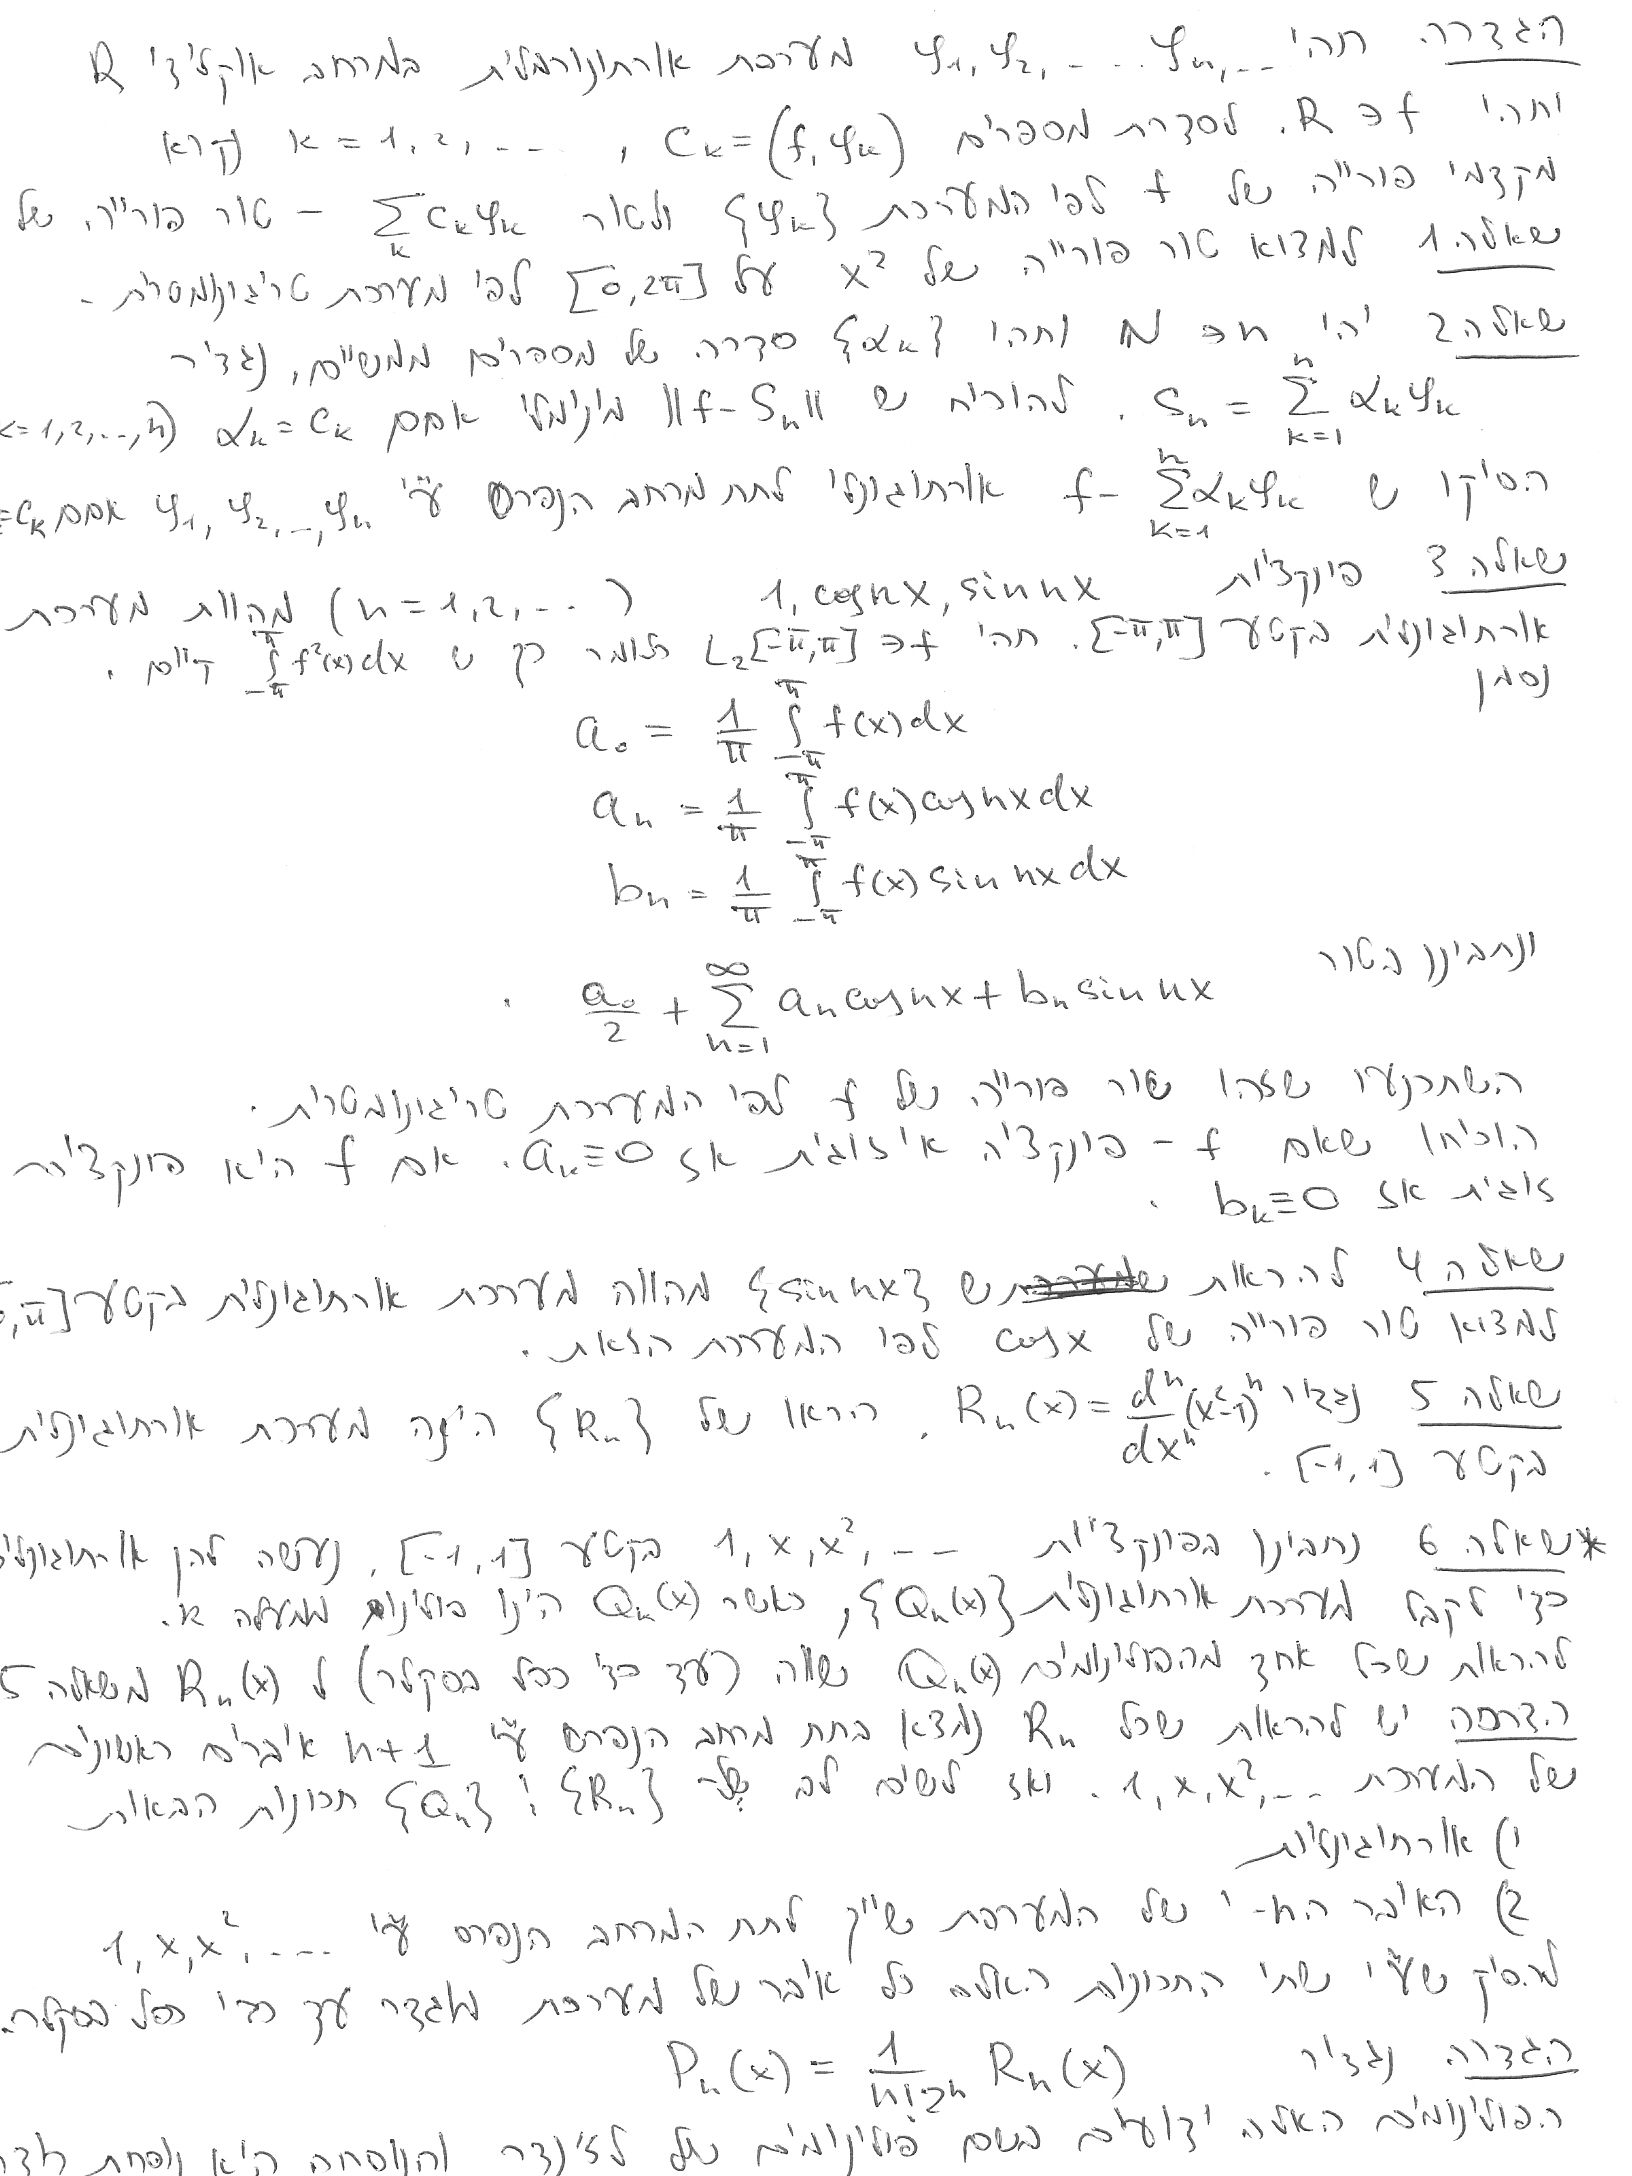 הגדרה תהי φ₁, φ₂, ... φₙ, .. מערכת אורתונורמלית במרחב אוקלידי R
ותהי f ∈ R. לסדרת מספרים cₖ = (f, φₖ) , k = 1, 2, ... נקרא
מקדמי פורייה של f לפי המערכת {φₖ} ולטור Σₖ cₖφₖ – טור פורייה של
שאלה 1 למצוא טור פורייה של x² על [0, 2π] לפי מערכת טריגונומטרית.
שאלה 2 יהי n ∈ N ותהי {αₖ} סדרה של מספרים ממשיים, נגדיר
Sₙ = Σₖ₌₁ⁿ αₖφₖ . להוכיח ש ||f - Sₙ|| מינימלי אםם αₖ = cₖ (k=1,2,...,n)
הסיקו ש f - Σₖ₌₁ⁿ αₖφₖ אורתוגונלי לתת מרחב הנפרס ע"י φ₁, φ₂, .., φₙ אםם =cₖ
שאלה 3 פונקציות 1, cos nx, sin nx (n = 1, 2, ...) מהוות מערכת
אורתוגונלית בקטע [-π, π]. תהי f ∈ L₂[-π, π] כלומר כך ש ∫_{-π}^{π} f²(x)dx קיים .
נסמן
a₀ = 1/π ∫_{-π}^{π} f(x)dx
aₙ = 1/π ∫_{-π}^{π} f(x) cos nx dx
bₙ = 1/π ∫_{-π}^{π} f(x) sin nx dx
ונתבונן בטור
a₀/2 + Σₙ₌₁^∞ aₙ cos nx + bₙ sin nx .
השתכנעו שזהו טור פורייה של f לפי המערכת טריגונומטרית.
הוכיחו שאם f – פונקציה אי זוגית אז aₖ ≡ 0. אם f היא פונקציה
זוגית אז bₖ ≡ 0 .
שאלה 4 להראות ש {sin nx} מהווה מערכת אורתוגונלית בקטע ,π]
למצוא טור פורייה של cos x לפי המערכת הזאת .
שאלה 5 נגדיר Rₙ(x) = dⁿ/dxⁿ (x²-1)ⁿ . הראו של {Rₙ} הינה מערכת אורתוגונלית
בקטע [-1, 1] .
*שאלה 6 נתבונן בפונקציות 1, x, x², ... בקטע [-1, 1], נעשה להן אורתוגונלי
כדי לקבל מערכת אורתוגונלית {Qₙ(x)}, כאשר Qₙ(x) הינו פולינום ממעלה n.
להראות שכל אחד מהפולינומים Qₙ(x) שווה (עד כדי כפל בסקלר) ל Rₙ(x) משאלה 5
הדרכה יש להראות שכל Rₙ נמצא בתת מרחב הנפרס ע"י n+1 איברים ראשונים
של המערכת 1, x, x², ... ואז לשים לב של {Rₙ} ו {Qₙ} תכונות הבאות
1) אורתוגונליות
2) האיבר ה-n י של המערכת שייך לתת המרחב הנפרס ע"י 1, x, x², ...
להסיק שע"י שתי התכונות האלה כל איבר של מערכת מוגדר עד כדי כפל בסקלר.
הגדרה נגדיר Pₙ(x) = 1/(n!2ⁿ) Rₙ(x)
הפולינומים האלה ידועים בשם פולינומים של לז'נדר והנוסחה היא נוסחת